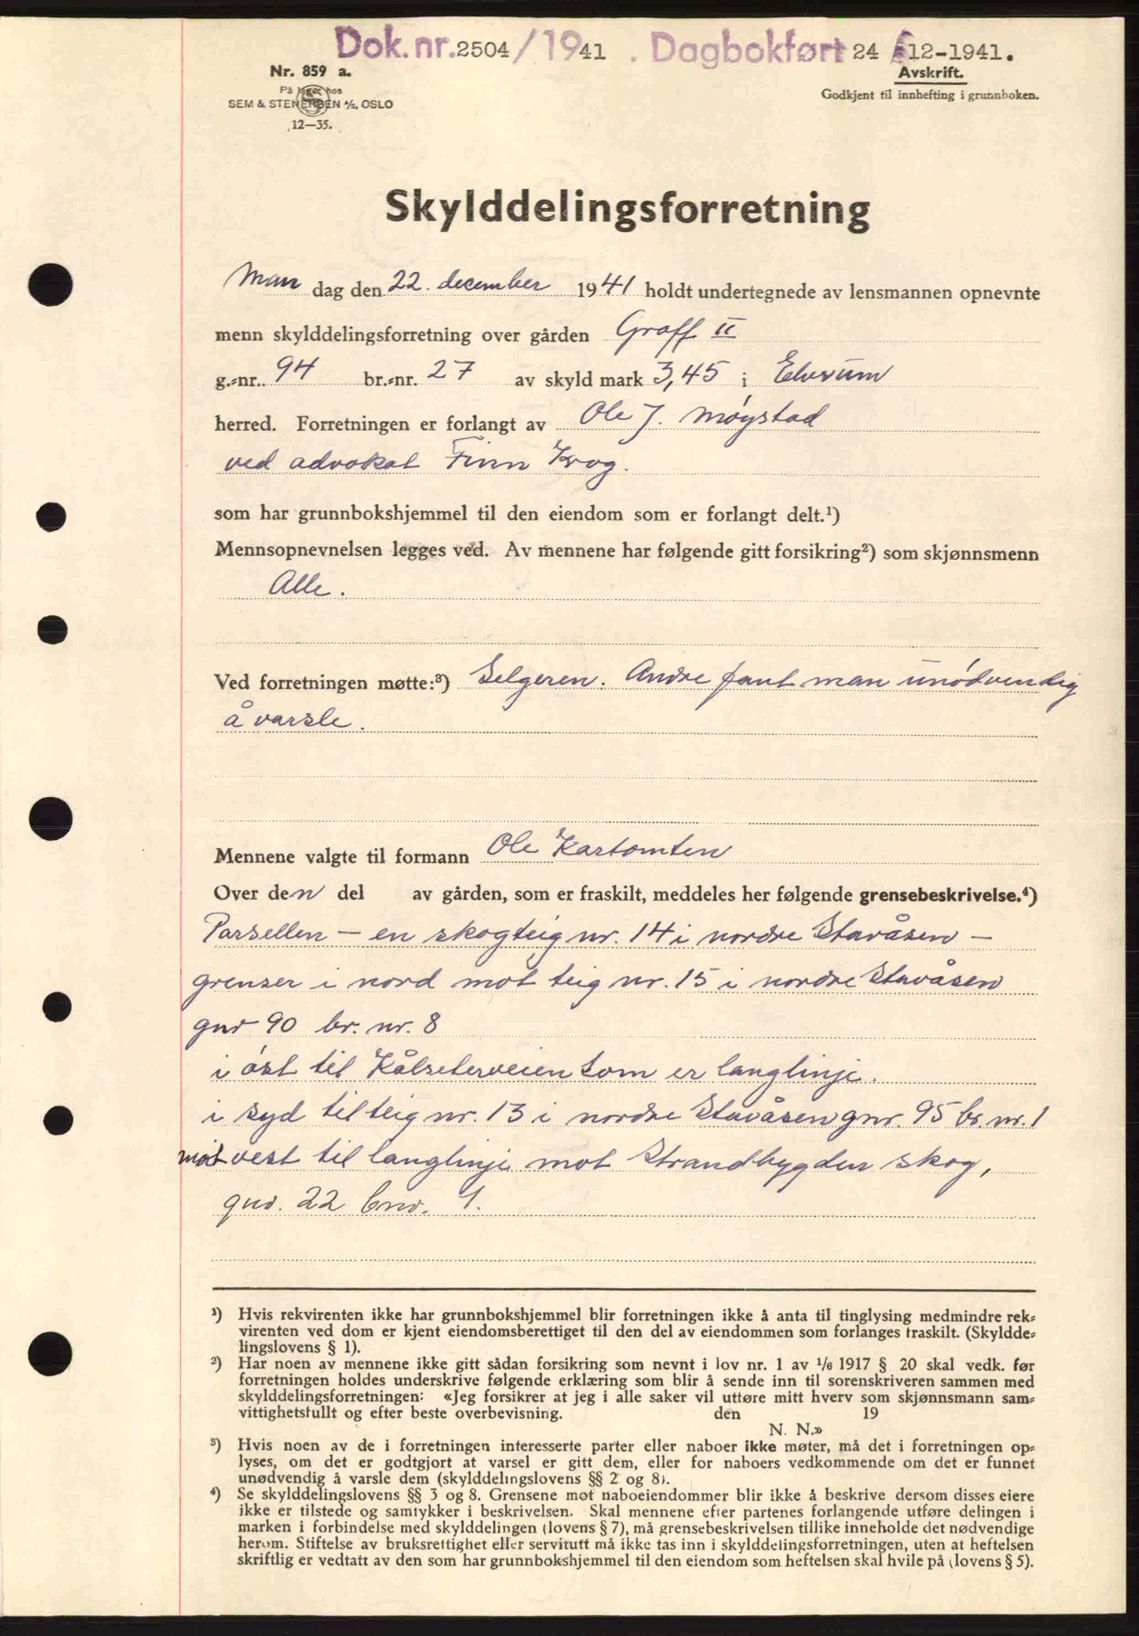 Dok. nr. 2504/1941. Dagbokført 24/12-1941.
Nr. 859 a.
På lager hos
SEM & STENERSEN A/S, OSLO
12—35.
Avskrift.
Godkjent til innhefting i grunnboken.
Skylddelingsforretning
Man dag den 22. december 1941 holdt undertegnede av lensmannen opnevnte
menn skylddelingsforretning over gården Graff II
g.-nr. 94 br.-nr. 27 av skyld mark 3,45 i Elverum
herred. Forretningen er forlangt av Ole J. Møystad
ved advokat Finn Krog.
som har grunnbokshjemmel til den eiendom som er forlangt delt.¹)
Mennsopnevnelsen legges ved. Av mennene har følgende gitt forsikring²) som skjønnsmenn
Alle.
Ved forretningen møtte:³) Selgeren. Andre fant man unødvendig
å varsle.
Mennene valgte til formann Ole Kartomten
Over den del av gården, som er fraskilt, meddeles her følgende grensebeskrivelse.⁴)
Parsellen — en skogteig nr. 14 i nordre Stavåsen —
grenser i nord mot teig nr. 15 i nordre Stavåsen
gnr 90 br. nr. 8
i øst til Kålseterveien som er langlinje.
i syd til teig nr. 13 i nordre Stavåsen gnr. 95 br. nr. 1
mot vest til langlinje mot Strandbygden skog,
gnr. 22 bnr. 1.
¹) Hvis rekvirenten ikke har grunnbokshjemmel blir forretningen ikke å anta til tinglysing medmindre rek-
virenten ved dom er kjent eiendomsberettiget til den del av eiendommen som forlanges fraskilt. (Skyldde-
lingslovens § 1).
²) Har noen av mennene ikke gitt sådan forsikring som nevnt i lov nr. 1 av 1/6 1917 § 20 skal vedk. før
forretningen holdes underskrive følgende erklæring som blir å sende inn til sorenskriveren sammen med
skylddelingsforretningen: «Jeg forsikrer at jeg i alle saker vil utføre mitt hverv som skjønnsmann sam-
vittighetsfullt og efter beste overbevisning. den 19
N. N.»
³) Hvis noen av de i forretningen interesserte parter eller naboer ikke møter, må det i forretningen op-
lyses, om det er godtgjort at varsel er gitt dem, eller for naboers vedkommende om det er funnet
unødvendig å varsle dem (skylddelingslovens §§ 2 og 8).
⁴) Se skylddelingslovens §§ 3 og 8. Grensene mot naboeiendommer blir ikke å beskrive dersom disses eiere
ikke er tilstede og samtykker i beskrivelsen. Skal mennene efter partenes forlangende utføre delingen i
marken i forbindelse med skylddelingen (lovens § 7), må grensebeskrivelsen tillike inneholde det nødvendige
herom. Stiftelse av bruksrettighet eller servitutt må ikke tas inn i skylddelingsforretningen, uten at heftelsen
skriftlig er vedtatt av den som har grunnbokshjemmel til den eiendom som heftelsen skal hvile på (lovens § 5).